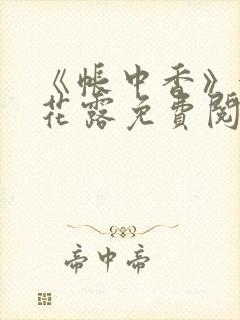 《帐中香》
花露免費閱
帝中帝